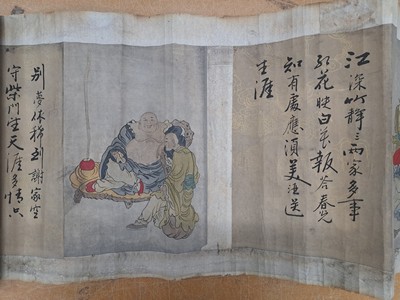 江深竹靜三兩家多事
紅花映白花報答春光
知有處應須美酒送
生涯
別夢依稀到謝家空
守柴門天涯多情只